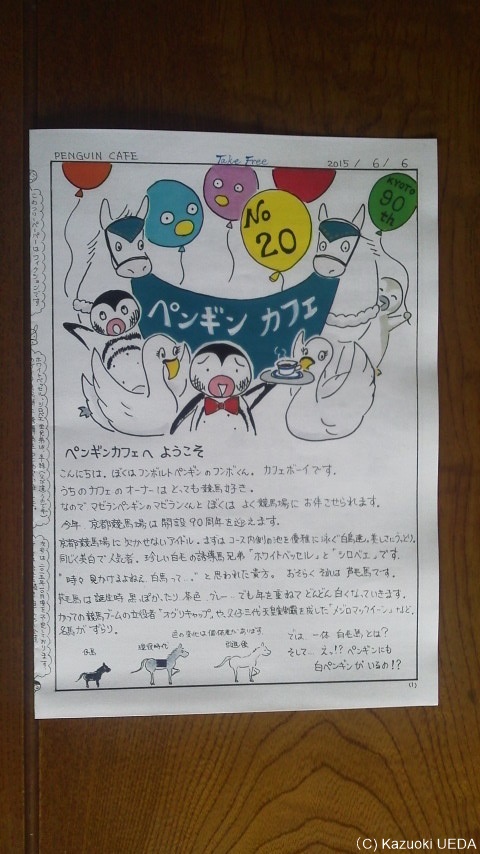 PENGUIN CAFE
Take Free
2015 / 6 / 6
No 20
KYOTO 90th
ペンギン カフェ
ペンギンカフェへ ようこそ
こんにちは。ぼくはフンボルトペンギンのフンボくん。カフェボーイです。
うちのカフェのオーナーはとっても競馬好き。
なのでマゼランペンギンのマゼランくんとぼくはよく競馬場にお供させられます。
今年、京都競馬場は開設90周年を迎えます。
京都競馬場に欠かせないアイドル。まずはコース内側の池を優雅に泳ぐ白鳥達。美しさにうっとり。
同じく美白で人気者。珍しい白毛の誘導馬兄弟"ホワイトベッセル"と"シロベエ"です。
"時々見かけるよねえ、白馬って…"と思われた貴方。おそらくそれは芦毛馬です。
芦毛馬は誕生時黒っぽかったり、茶色、グレー…でも年を重ねてどんどん白くなっていきます。
かつての競馬ブームの立役者"オグリキャップ"や、父子三代天皇賞制覇を成した"メジロマックイーン"など、
名馬がずらり。
色の変化は個体差があります。
現役時代
引退後
では一体白毛馬とは?
そして…えっ!?ペンギンにも
白ペンギンがいるの!?
(1)
(C) Kazuoki UEDA